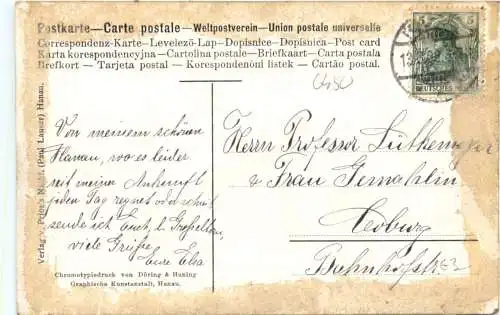 Postkarte—Carte postale—Weltpostverein—Union postale universelle
Correspondenz-Karte—Levelező-Lap—Dopisnice—Dopisnica—Post card
Karta korespondencyjna—Cartolina postale—Briefkaart—Carta postala
Brefkort — Tarjeta postal — Korespondenöni listek — Cartão postal.
5 5
DEUTSCHES
Verlag v. Prior's (Paul Lauser) Hanau.
Von meinem schönen
Hanau, wo es leider
seit meiner Ankunft
jeden Tag regnet oder schneit
sende ich Euch, l. Großeltern,
viele Grüße
Eure Elsa
Herrn Professor Lüthemeyer
& Frau Gemahlin
Coburg
Bahnhofstr.
Chromotypiedruck von Döring & Huning
Graphische Kunstanstalt, Hanau.